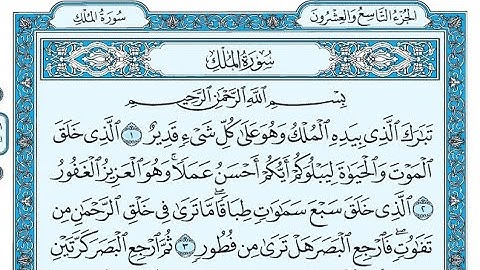 سُورَةُ المُلْكِ
الجُزْءُ التَّاسِعُ وَالعِشْرُونَ
سُورَةُ المُلْكِ
بِسْمِ اللَّهِ الرَّحْمَٰنِ الرَّحِيمِ
تَبَٰرَكَ ٱلَّذِي بِيَدِهِ ٱلْمُلْكُ وَهُوَ عَلَىٰ كُلِّ شَيْءٍ قَدِيرٌ ١ ٱلَّذِي خَلَقَ
ٱلْمَوْتَ وَٱلْحَيَوٰةَ لِيَبْلُوَكُمْ أَيُّكُمْ أَحْسَنُ عَمَلًا ۚ وَهُوَ ٱلْعَزِيزُ ٱلْغَفُورُ
٢ ٱلَّذِي خَلَقَ سَبْعَ سَمَٰوَٰتٍ طِبَاقًا ۖ مَّا تَرَىٰ فِي خَلْقِ ٱلرَّحْمَٰنِ مِن
تَفَٰوُتٍ ۖ فَٱرْجِعِ ٱلْبَصَرَ هَلْ تَرَىٰ مِن فُطُورٍ ٣ ثُمَّ ٱرْجِعِ ٱلْبَصَرَ كَرَّتَيْنِ